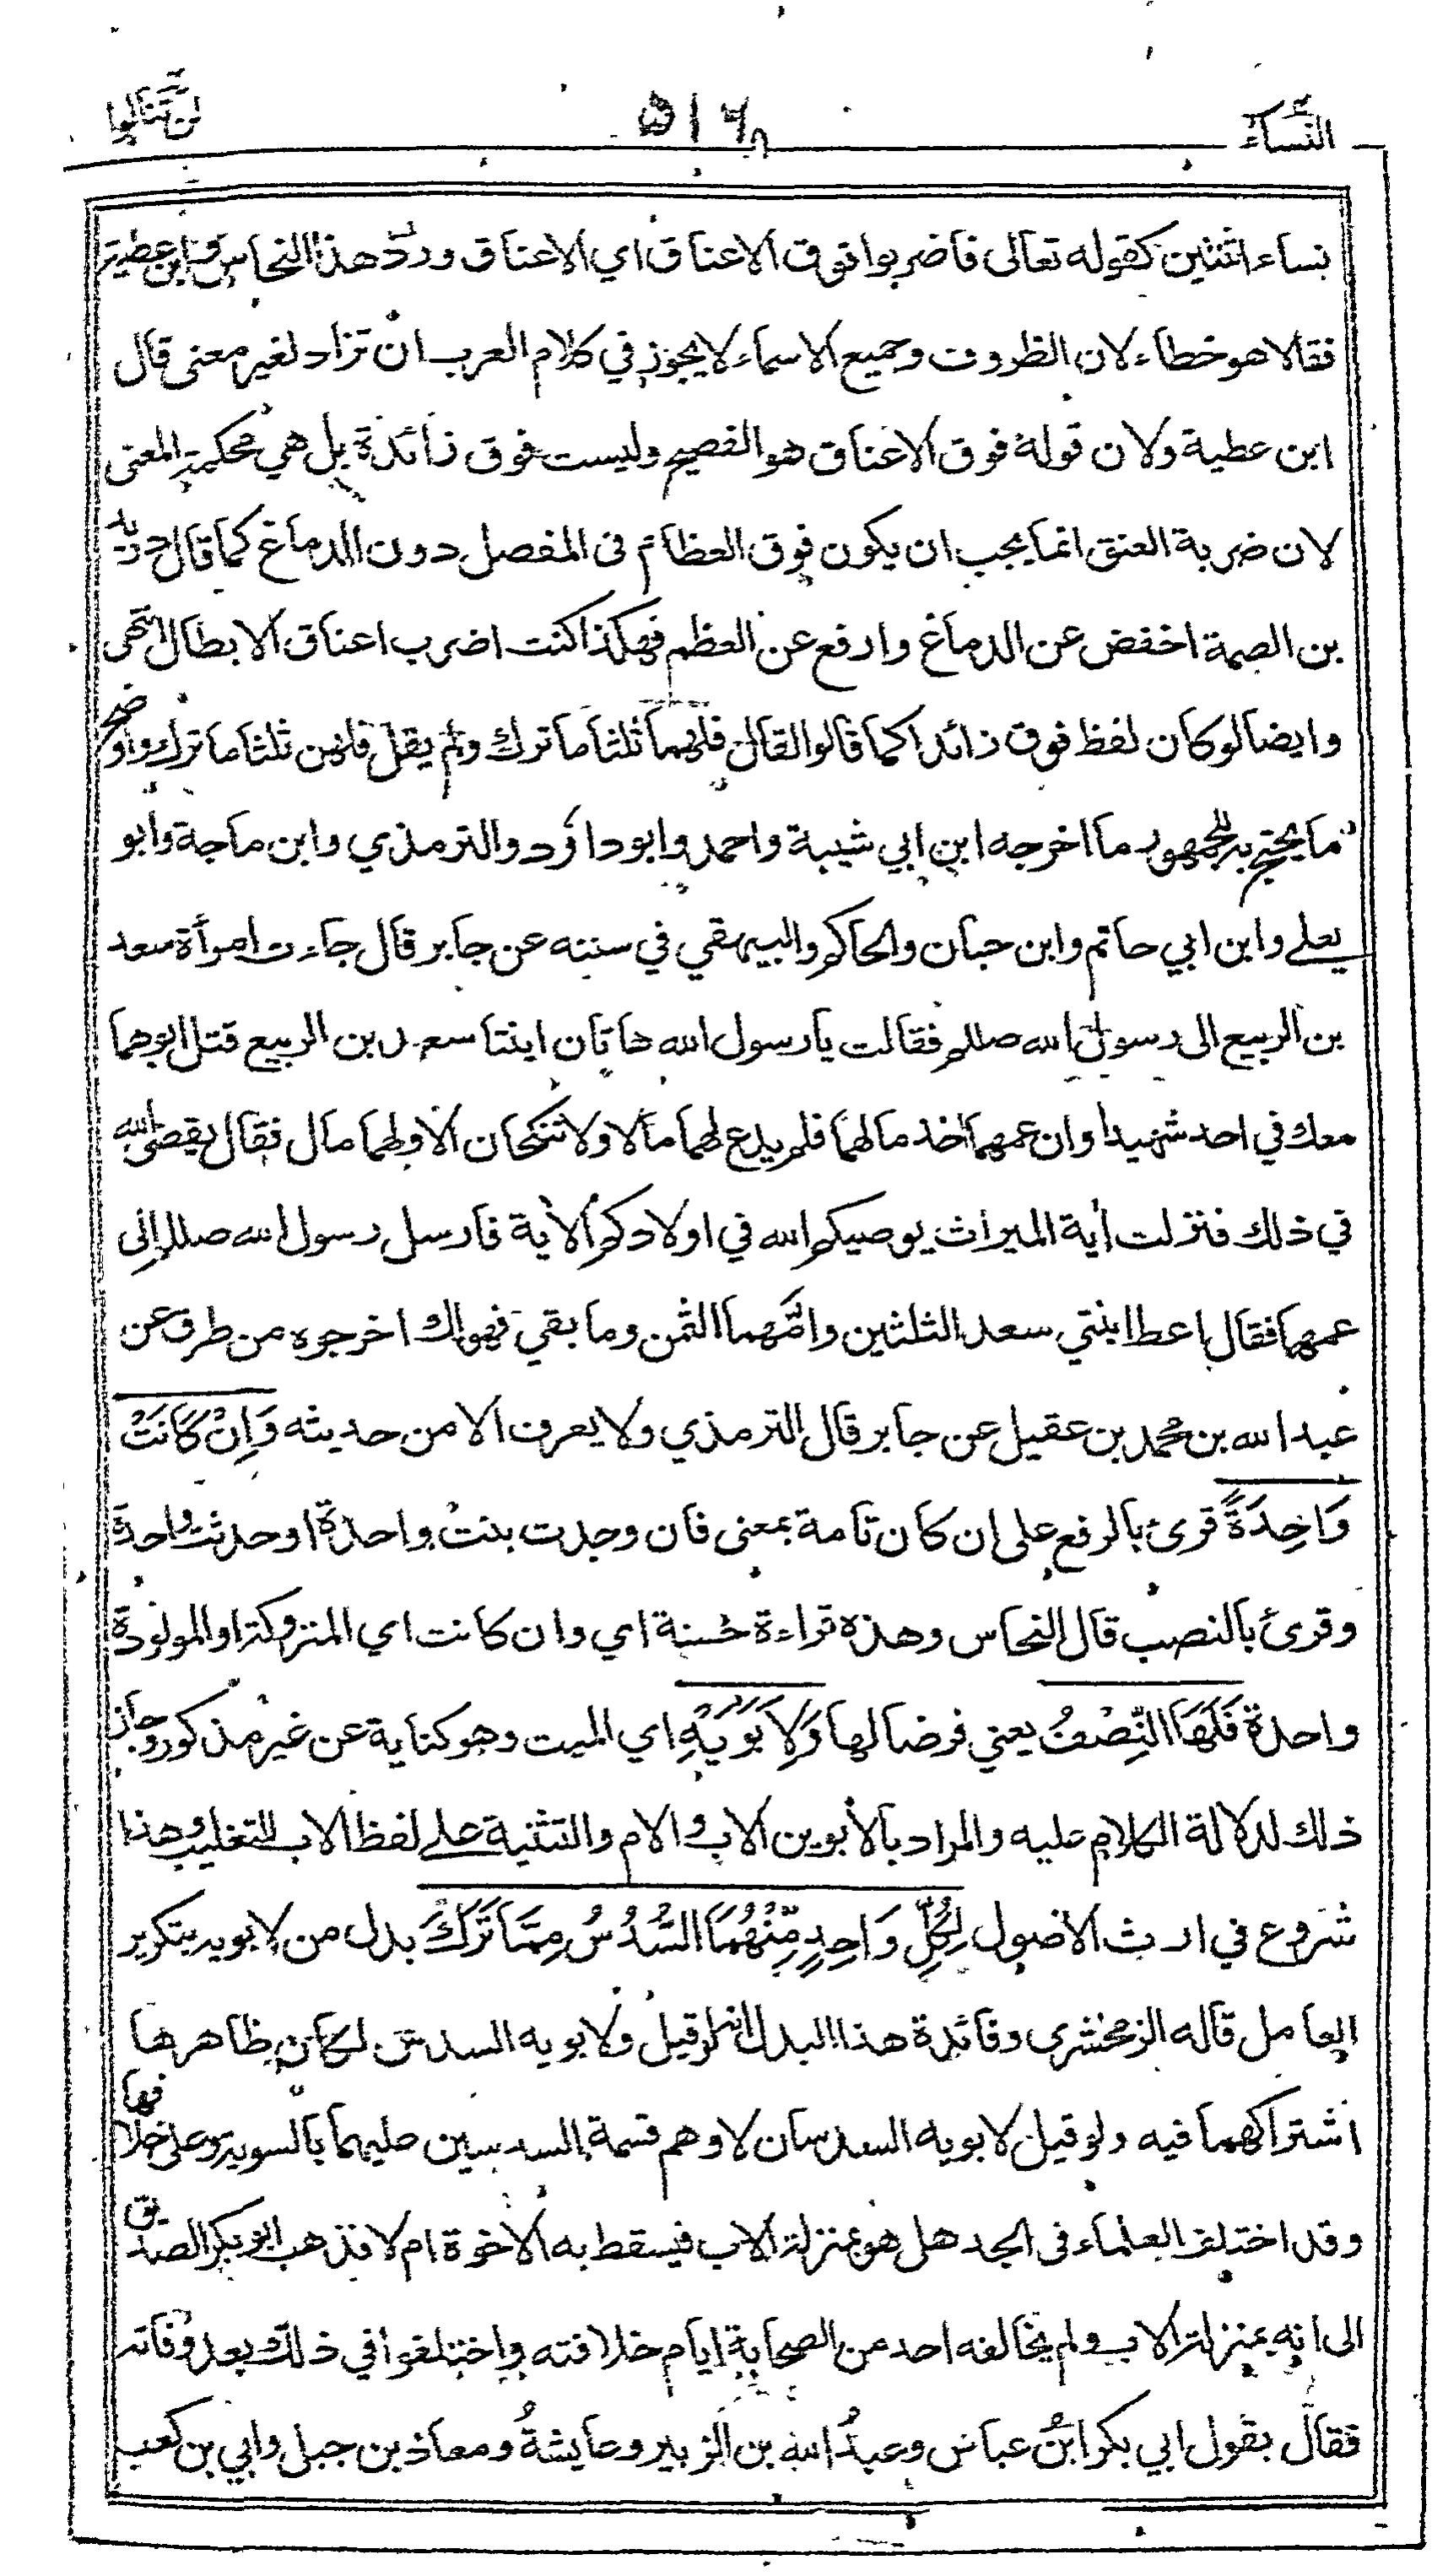 النساء ٥١٦ لن تنالوا
نساء اثنتين كقوله تعالى فاضربوا فوق الاعناق اي الاعناق وردّ هذا النحاس وابن عطية
فقالا هو خطاء لان الظروف وجميع الاسماء لا يجوز في كلام العرب ان تزاد لغير معنى قال
ابن عطية ولان قوله فوق الاعناق هو الفصيح وليست فوق زائدة بل هي محكمة المعنى
لان ضربة العنق انما يجب ان يكون فوق العظام في المفصل دون الدماغ كما قال دريد
بن الصمة اخفض عن الدماغ وارفع عن العظم فهكذا كنت اضرب اعناق الابطال انتهى
وايضا لو كان لفظ فوق زائدا كما قالوا لقال فلهما ثلثا ما ترك ولم يقل فلهن ثلثا ما ترك واوضح
ما يحتج به للجمهور ما اخرجه ابن ابي شيبة واحمد وابو داؤد والترمذي وابن ماجة وابو
يعلے وابن ابي حاتم وابن حبان والحاكم والبيهقي في سننه عن جابر قال جاءت امرأة سعد
بن الربيع الى رسول الله صللم فقالت يا رسول الله هاتان ابنتا سعد بن الربيع قتل ابوهما
معك في احد شهيدا وان عمهما اخذ مالهما فلم يدع لهما مالا ولا تنكحان الا ولهما مال فقال يقضى الله
في ذلك فنزلت أية الميراث يوصيكم الله في اولادكم ألأية فارسل رسول الله صللم إلى
عمهما فقال اعط ابنتي سعد الثلثين وامّهما الثمن وما بقي فهو لك اخرجوه من طرق عن
عبد الله بن محمد بن عقيل عن جابر قال الترمذي ولا يعرف الا من حديثه وَاِنْ كَانَتْ
وَاحِدَةً قرئ بالرفع على ان كان تامة بمعنى فان وجدت بنت واحدة او حدثت واحدة
وقرئ بالنصب قال النحاس وهذه قراءة حسنة اي وان كانت اي المتروكة او المولودة
واحدة فَلَهَا النِّصْفُ يعني فرضا لها وَلِاَبَوَيْهِ اي الميت وهو كناية عن غير مذكور وجاز
ذلك لدلالة الكلام عليه والمراد بالأبوين الاب والام والتثنية علے لفظ الاب للتغليب وهذا
شروع في ارث الاصول لِكُلِّ وَاحِدٍ مِّنْهُمَا السُّدُسُ مِمَّا تَرَكَ بدل من لابويه بتكرير
العامل قاله الزمخشري وفائدة هذا البدل انه لو قيل ولابويه السدس لكان ظاهرها
اشتراكهما فيه ولو قيل لابويه السدسان لاوهم قسمة السدسين عليهما بالسوية وعلى خلافها
وقد اختلف العلماء في الجد هل هو بمنزلة الاب فيسقط به الاخوة ام لا فذهب ابو بكر الصديق
الى انه بمنزلة الاب ولم يخالفه احد من الصحابة ايام خلافته واختلفوا في ذلك بعد وفاته
فقال بقول ابي بكر ابن عباس وعبد الله بن الزبير وعايشة ومعاذ بن جبل وابي بن كعب